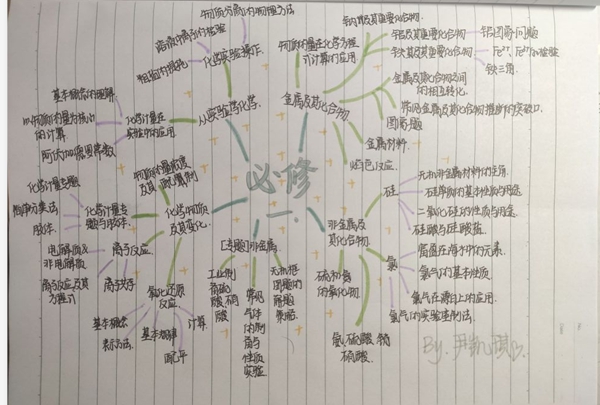 必修一
从实验学化学
化学实验操作
物质分离的物理方法
溶液中离子的检验
粗盐的提纯
化学计量在
实验中的应用
基本概念的理解
以物质的量为核心
的计算
阿伏加德罗常数
物质的量浓度
及其配制
化学物质
及其变化
化学计量专
化学计量专题
物质分类法
胶体
离子反应
电解质及
非电解质
离子反应及其
方程式
离子共存
氧化还原
反应
基本概念
表示方法
基本规律
配平
计算
[专题]非金属
工业制
硫酸
硝
酸
常见
气体
的制
备与
性质
实验
无机框
图题的
解题
策略
金属及其化合物
物质的量在化学方程
式计算的应用
钠及其重要化合物
铝及其重要化合物
铝图象问题
铁及其重要化合物
Fe²⁺、Fe³⁺的检验
铁三角
金属及其化合物之间
的相互转化
常见金属及其化合物推断的突破口
图象题
金属材料
焰色反应
非金属
及其化合物
硅
无机非金属材料的主角
硅单质的基本性质与用途
二氧化硅的性质与用途
硅酸与硅酸盐
氯
富集在海水中的元素
氯气的基本性质
氯气在漂白上的应用
氯气的实验室制法
硫和氮
的氧化物
氨、硫酸、硝
硫酸
By. 尹凯琪